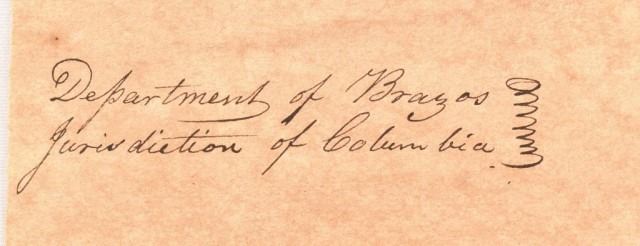 Department of Brazos
Jurisdiction of Columbia